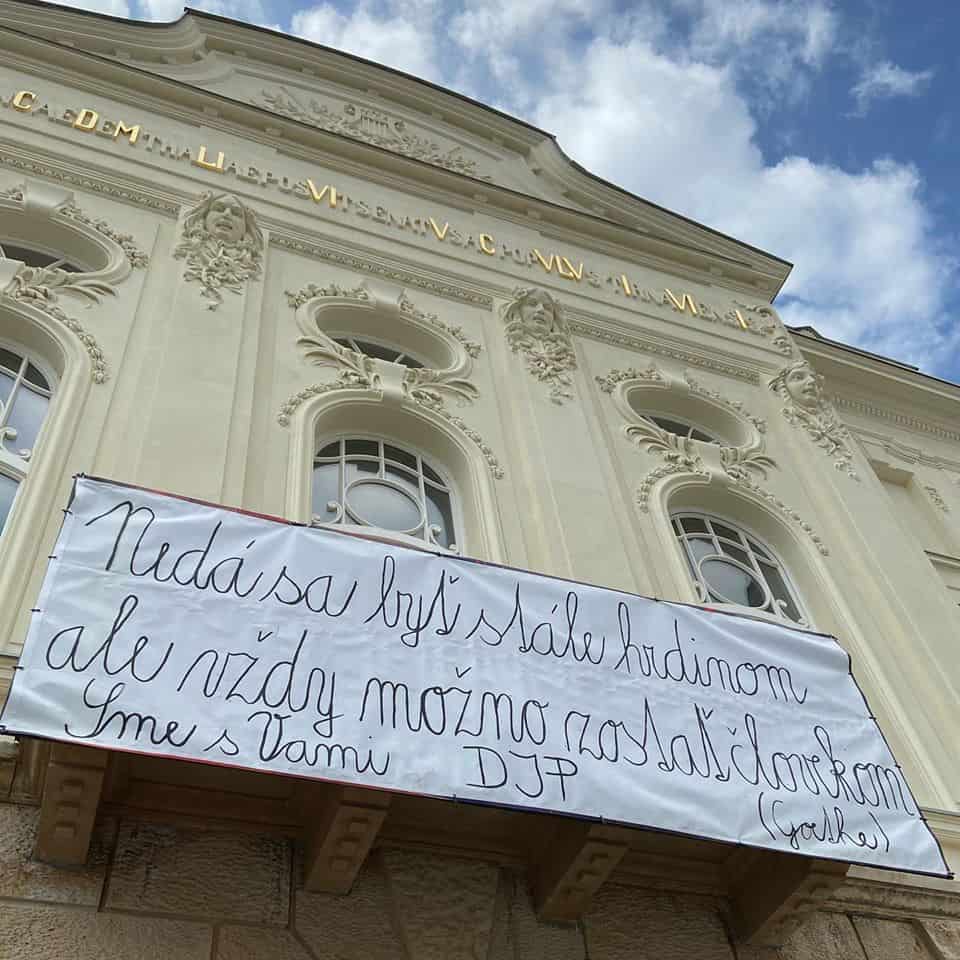 AC AEDEM THALIAE POSVIT SENATVS AC POPVLVS TIRNAVIENSIS
Nedá sa byť stále hrdinom
ale vždy možno zostať človekom
Sme s Vami DJP (Goethe)